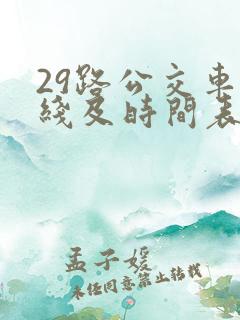 29路公交車
綫及時間表
孟子媛
未经同意禁止转载